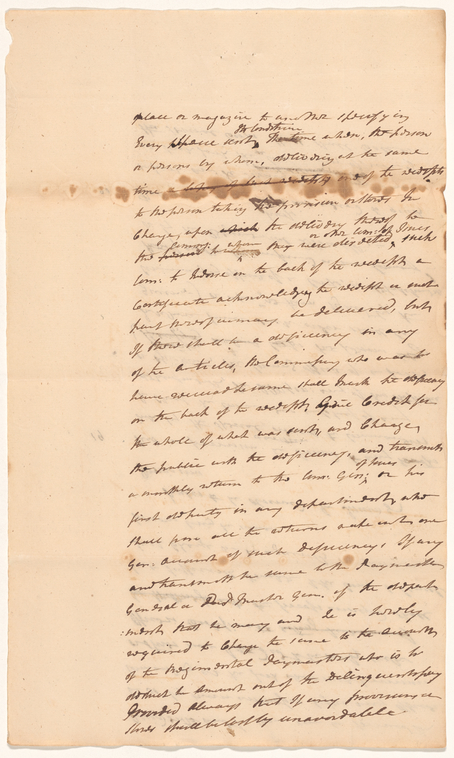 place or magazine to another specify in
Every Specie sent, the Condition The time when, the person
or persons by whom, delivering at the same
time one of the receipts
to the person taking the provision or stores in
Charge, upon the delivery thereof to
the Commy to whom they were directed or other Com: of Issues, such
Com: to Indorse on the back of the receipts a
Certificate acknowledging the receipt or such
part thereof as may be delivered, but
If there shall be a deficiency in any
of the articles, the Commissary who was to
have received the same shall mark the deficiency
on the back of the receipts, give Credit for
the whole of what was sent, and Charge
the public with the deficiency, and transmit
a monthly return to the Com: Gen: of Issues or his
first deputy in any department, who
shall from all the returns make out one
Gen: account of such deficiency, If any
and transmit the same to the Paymaster
General or of the depart
ment that he may and he is hereby
required to Charge the same to the accounts
of the Regimental Paymasters who is to
deduct the amount out of the Delinquents pay
Provided always that If any provisions or
stores shall be lost by unavoidable